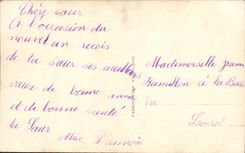 Chère sœur
A l'occasion du
nouvel an reçois
de la sœur ses meilleurs
vœux de bonne année
et de bonne santé
ta sœur Alice
Mademoiselle Jeanne
à la
Loiret